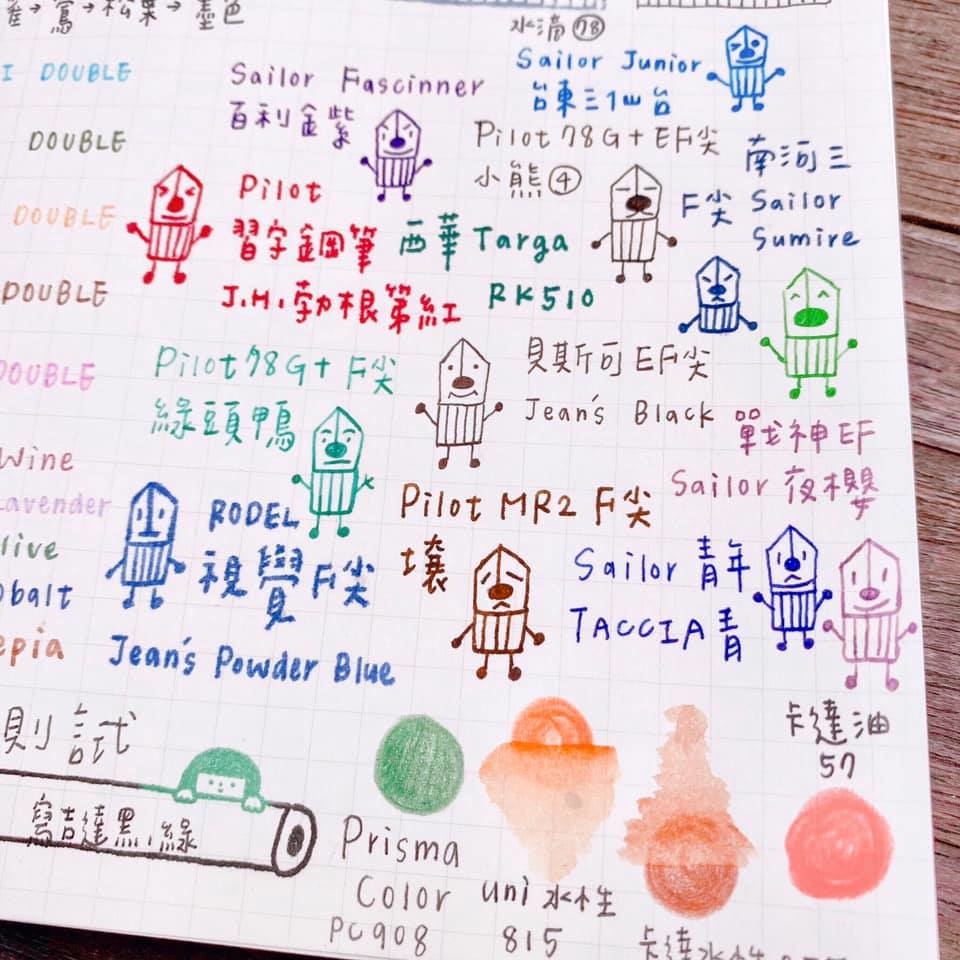 鴬→松果→墨色
水滴78
I DOUBLE
Sailor Fascinner
百利金紫
Sailor Junior
台東三1山台
DOUBLE
Pilot 78G+EF尖
小熊④
南河三
F尖 Sailor
Sumire
DOUBLE
Pilot
習字鋼筆
J.H.勃根第紅
西華 Targa
RK510
DOUBLE
Pilot 78G+ F尖
綠頭鴨
貝斯可EF尖
Jean's Black
DOUBLE
戰神EF
Sailor 夜櫻
Wine
Lavender
live
obalt
epia
RODEL
視覺F尖
Jean's Powder Blue
Pilot MR2 F尖
壤
Sailor 青年
TACCIA 青
則試
寫吉達黑,綠
Prisma
Color
PC908
uni 水性
815
卡達水性
卡達油
57